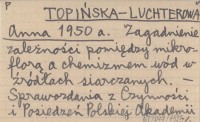 P
TOPIŃSKA-LUCHTEROWA
Anna 1950 a. Zagadnienie
zależności pomiędzy mikro-
florą a chemizmem wód w
źródłach siarczanych —
Sprawozdania z Czynności
i Posiedzeń Polskiej Akademii